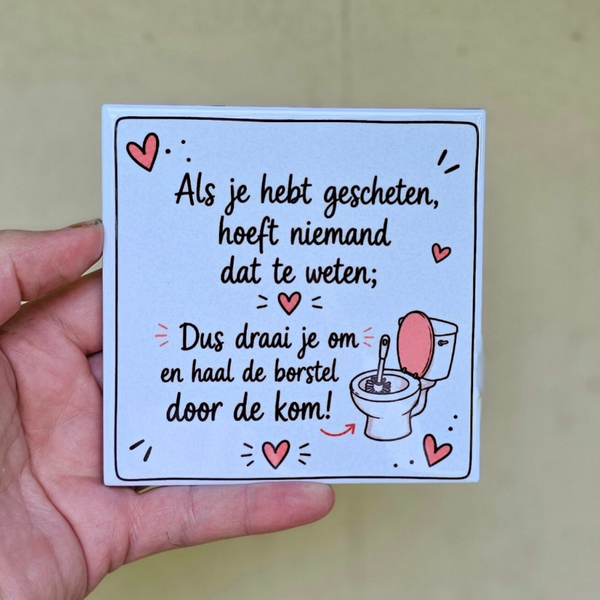 Als je hebt gescheten,
hoeft niemand
dat te weten;
Dus draai je om
en haal de borstel
door de kom!